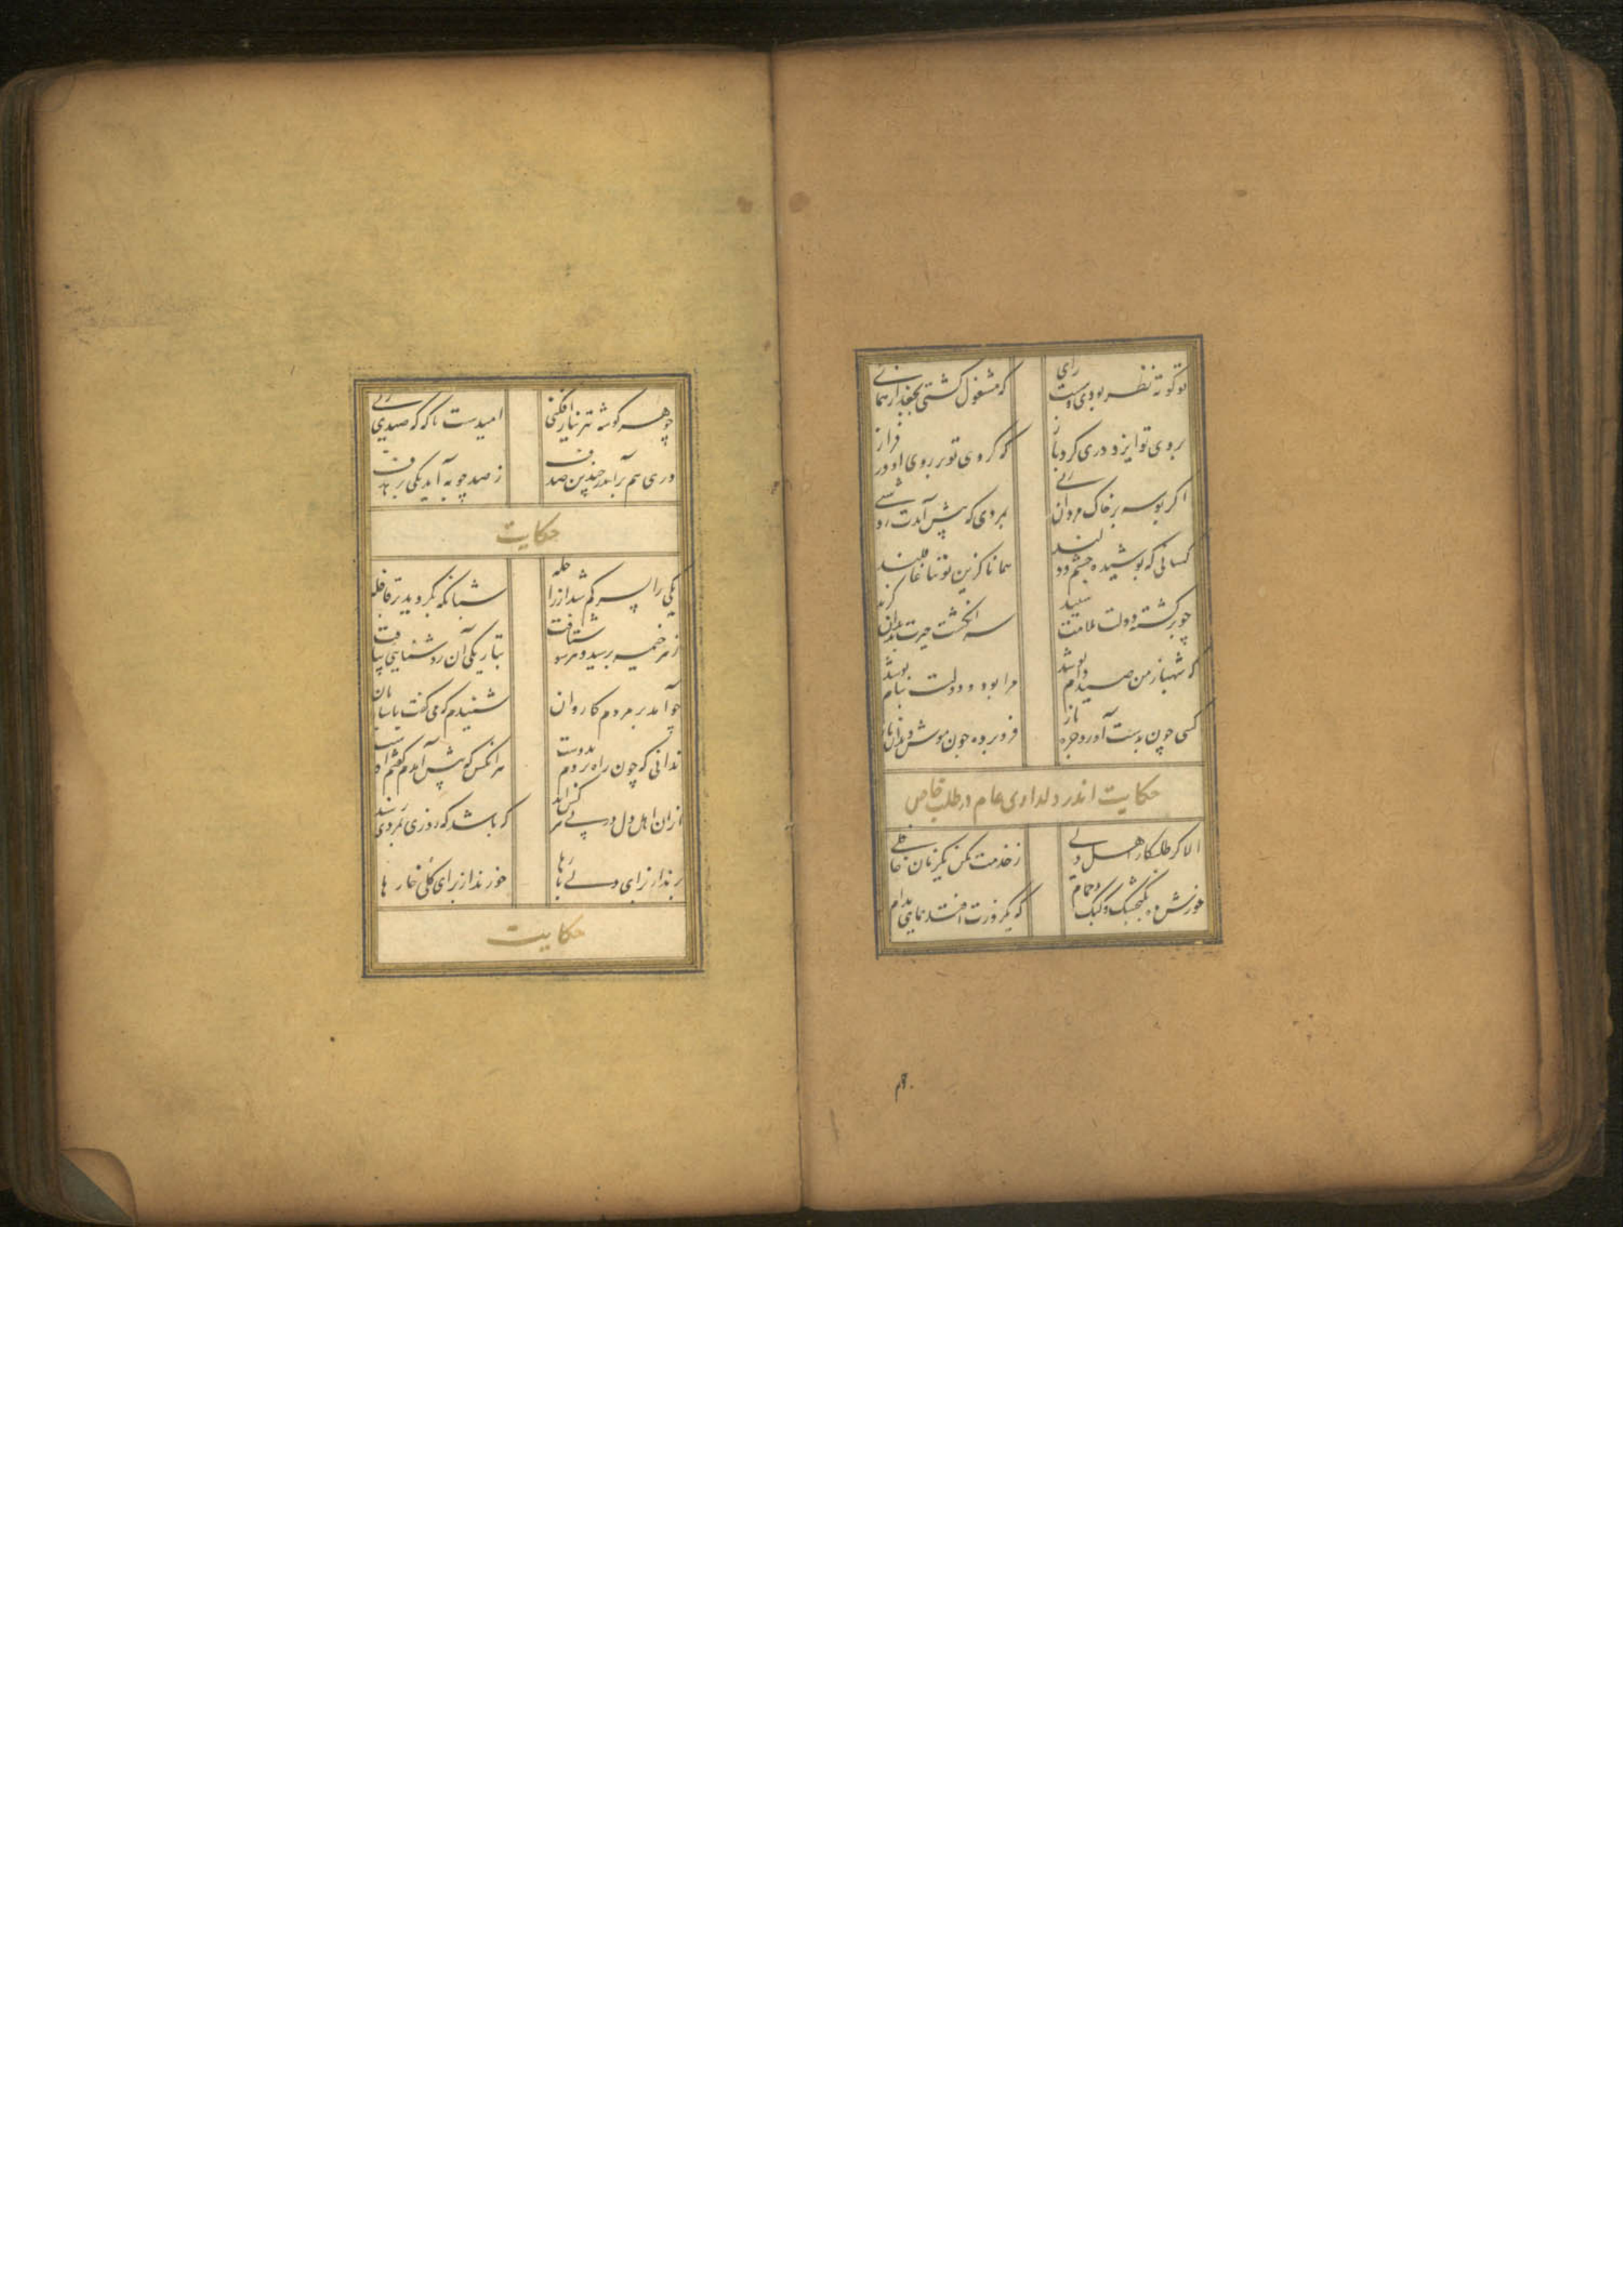 تو کوته نظر بودی و سست رای
که مشغول گشتی بجغد از همای
بروی تو ایزد دری کرد باز
که کردی تو بر روی او در فراز
اگر بوسه بر خاک مردان زنی
بمردی که پیش آیدت روشنی
کسانی که پوشیده چشم دلند
همانا کزین توتیا غافلند
چو برگشته دولت ملامت شنید
سر انگشت حیرت بدندان گزید
که شهباز من صید دام تو شد
مرا بود و دولت بنام تو شد
کسی چون بدست آورد جره باز
فرو برده چون موش دندان باز
حکایت اندر دلداری عام در طلب خاص
الا گر طلبکار اهل دلی
ز خدمت مکن یکزمان غافلی
خورش ده بگنجشک و کبک و حمام
که یکروزت افتد همایی بدام
چو هر گوشه تیر نیاز افکنی
امیدست ناگه که صیدی زنی
دری هم برآید ز چندین صدف
ز صد چوبه آید یکی بر هدف
حکایت
یکی را پسر گم شد از راحله
شبانگه بگردید در قافله
ز هر خیمه پرسید و هر سو شتافت
بتاریکی آن روشنایی بیافت
چو آمد بر مردم کاروان
شنیدم که می گفت با ساربان
ندانی که چون راه بردم بدوست
هر آنکس که پیش آمدم گفتم اوست
از آن اهل دل در پی هر کس اند
که باشد که روزی بمردی رسند
برند از برای دلی بارها
خورند از برای گلی خارها
حکایت